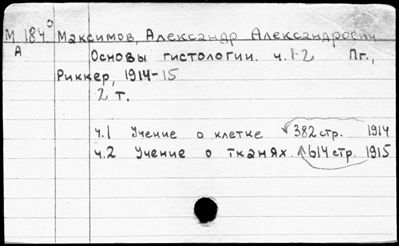 М 184 Максимов, Александр Александрович
А Основы гистологии. ч.1-2 Пг.,
Риккер, 1914-15
2 т.
ч.1 Учение о клетке 382 стр. 1914
ч.2 Учение о тканях 614 стр. 1915